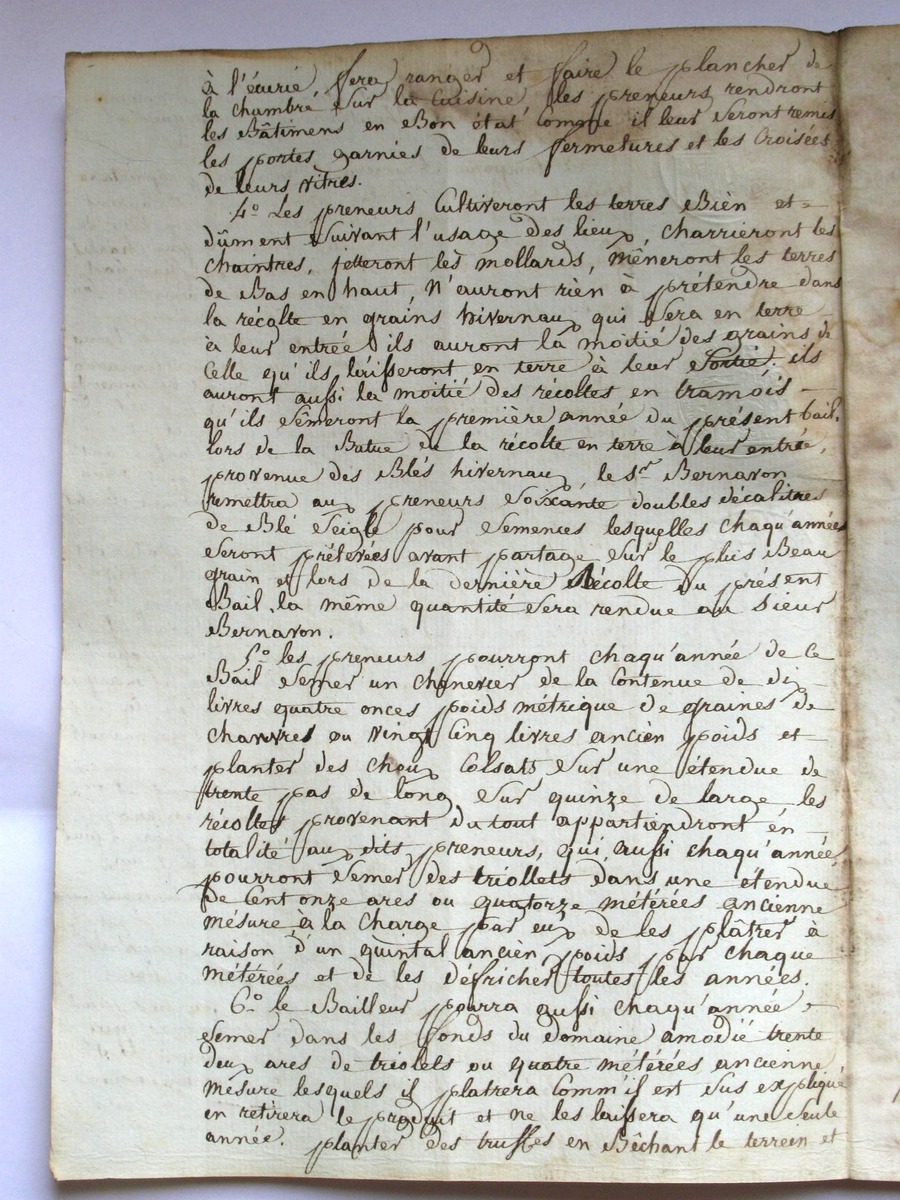 à l'écurie, fera ranger et faire le plancher de
la chambre sur la cuisine, les preneurs rendront
les Bâtimens en Bon état Comme il leur seront remis
les portes garnies de leurs fermetures et les Croisées
de leurs vitres.
4.° Les preneurs Cultiveront les terres Bien et =
dûment suivant l'usage des lieux, charrieront les
chaintres, jetteront les mollards, mêneront les terres
de Bas en haut, N'auront rien à prétendre dans
la récolte en grains hivernaux qui sera en terre
à leur entrée ils auront la moitié des grains de
Celle qu'ils laisseront en terre à leur sortie. ils
auront aussi la moitié des récoltes en tramois —
qu'ils sèmeront la première année du présent bail.
lors de la Batue de la récolte en terre à leur entrée,
provenue des Blés hivernaux, le s.r Bernavon
remettra aux preneurs soixante doubles décalitres
de Blé seigle pour semences lesquelles chaqu'année
seront prélevées avant partage sur le plus Beau
grain et lors de la dernière Récolte du présent
Bail, la même quantité sera rendue au sieur
Bernavon.
5.° les preneurs pourront chaqu'année de ce
Bail semer un chenevier de la Contenue de dix
livres quatre onces poids métrique de graines de
chanvres ou vingt Cinq livres ancien poids et
planter des choux Colsats sur une étendue de
trente pas de long sur quinze de large les
récoltes provenant du tout appartiendront en
totalité aux dits preneurs, qui aussi chaqu'année
pourront semer des triollets dans une étendue
de Cent onze ares ou quatorze métérées ancienne
mésure à la Charge par eux de les plâtrer à
raison d'un quintal ancien poids par chaque
métérées et de les défricher toutes les années.
6.° le Bailleur pourra aussi chaqu'année =
semer dans les fonds du domaine amodié trente
deux ares de triolets ou quatre métérées ancienne
mesure lesquels il platrera Comm'il est sus expliqué
en retirera le produit et ne les laissera qu'une seule
année. planter des truffes en Bêchant le terrein et